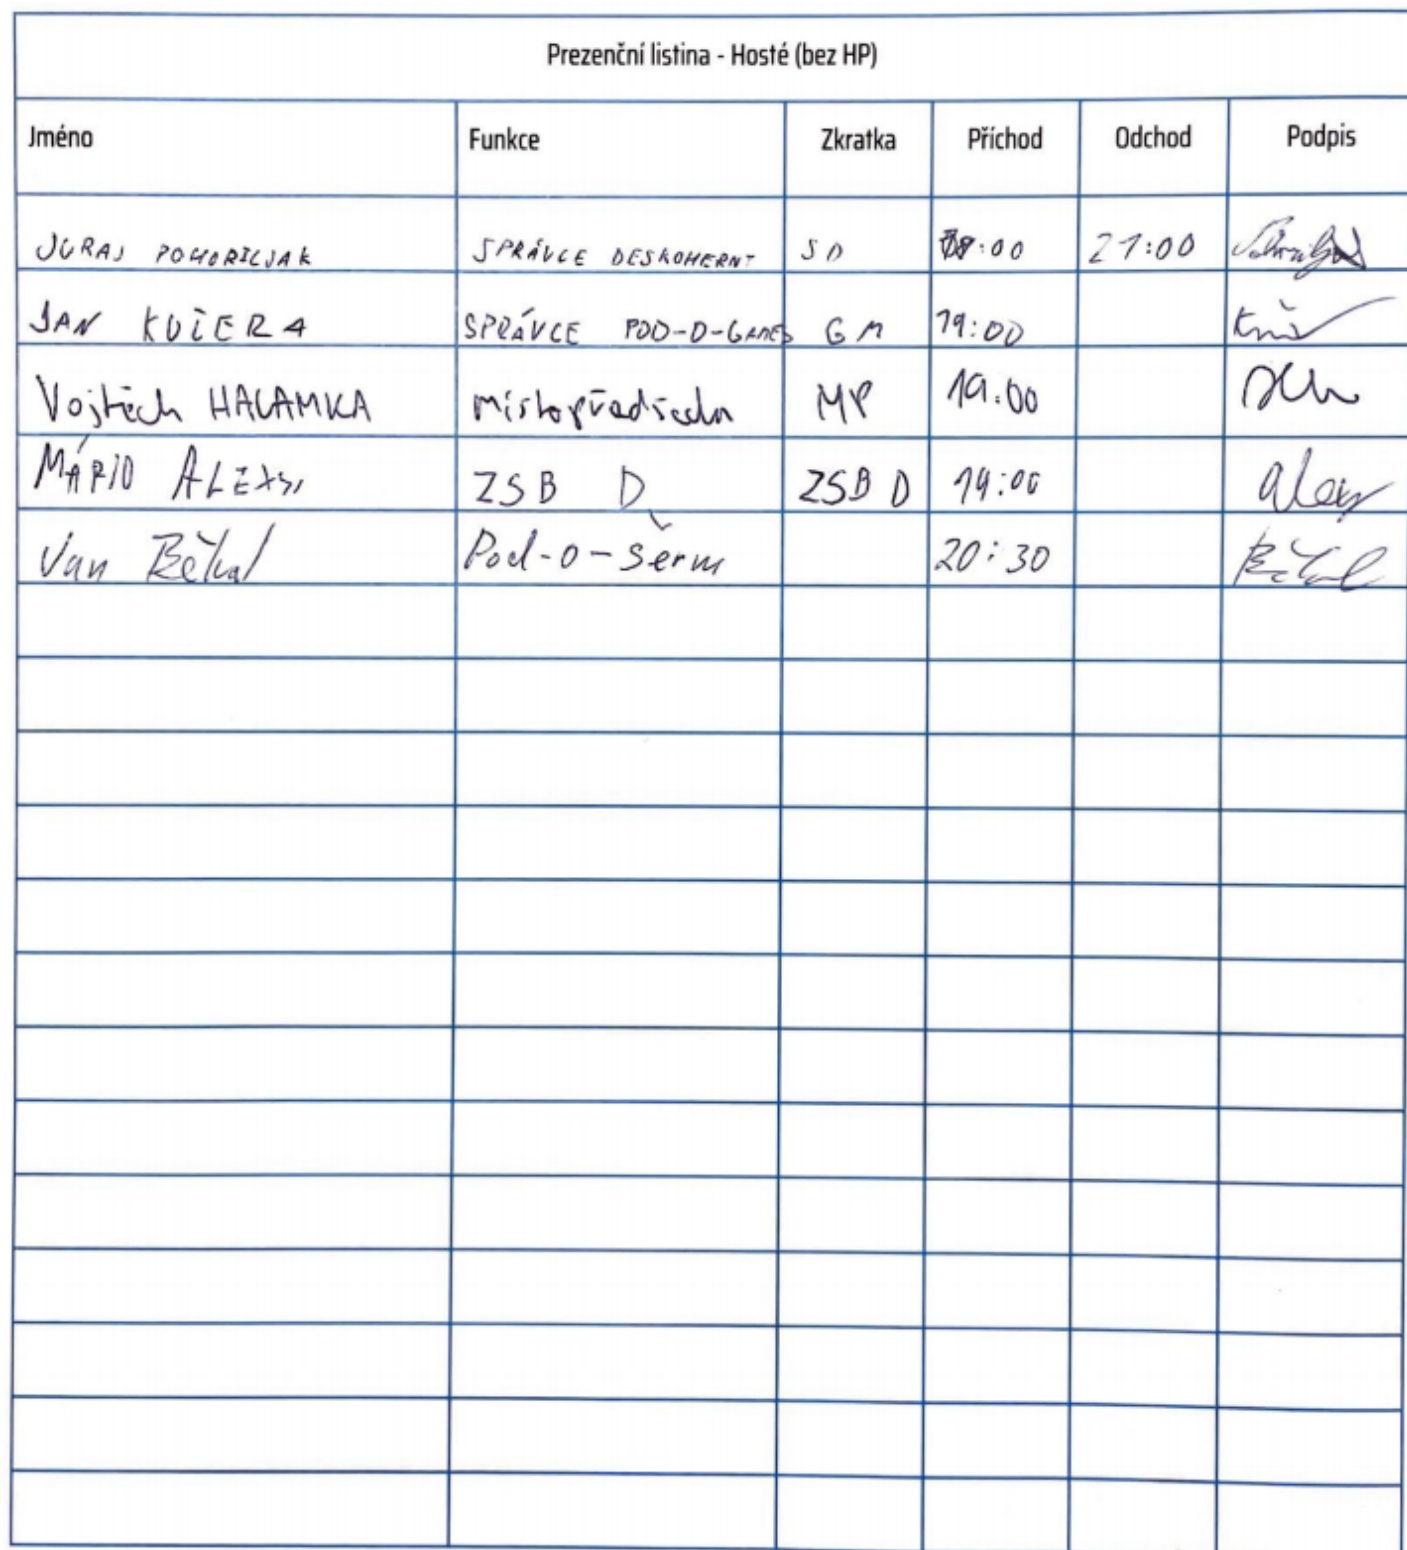 Prezenční listina - Hosté (bez HP)
Jméno Funkce Zkratka Příchod Odchod Podpis
JURAJ POHORILJAK SPRÁVCE DESKOHERNY SD :00 21:00
JAN KUČERA SPRÁVCE POD-O-GAMES GM 19:00
Vojtěch HALAMKA místopředseda MP 19:00
MÁRIO ALEXSI ZSB D ZSB D 19:00
Jan Pod-O-Šerm 20:30